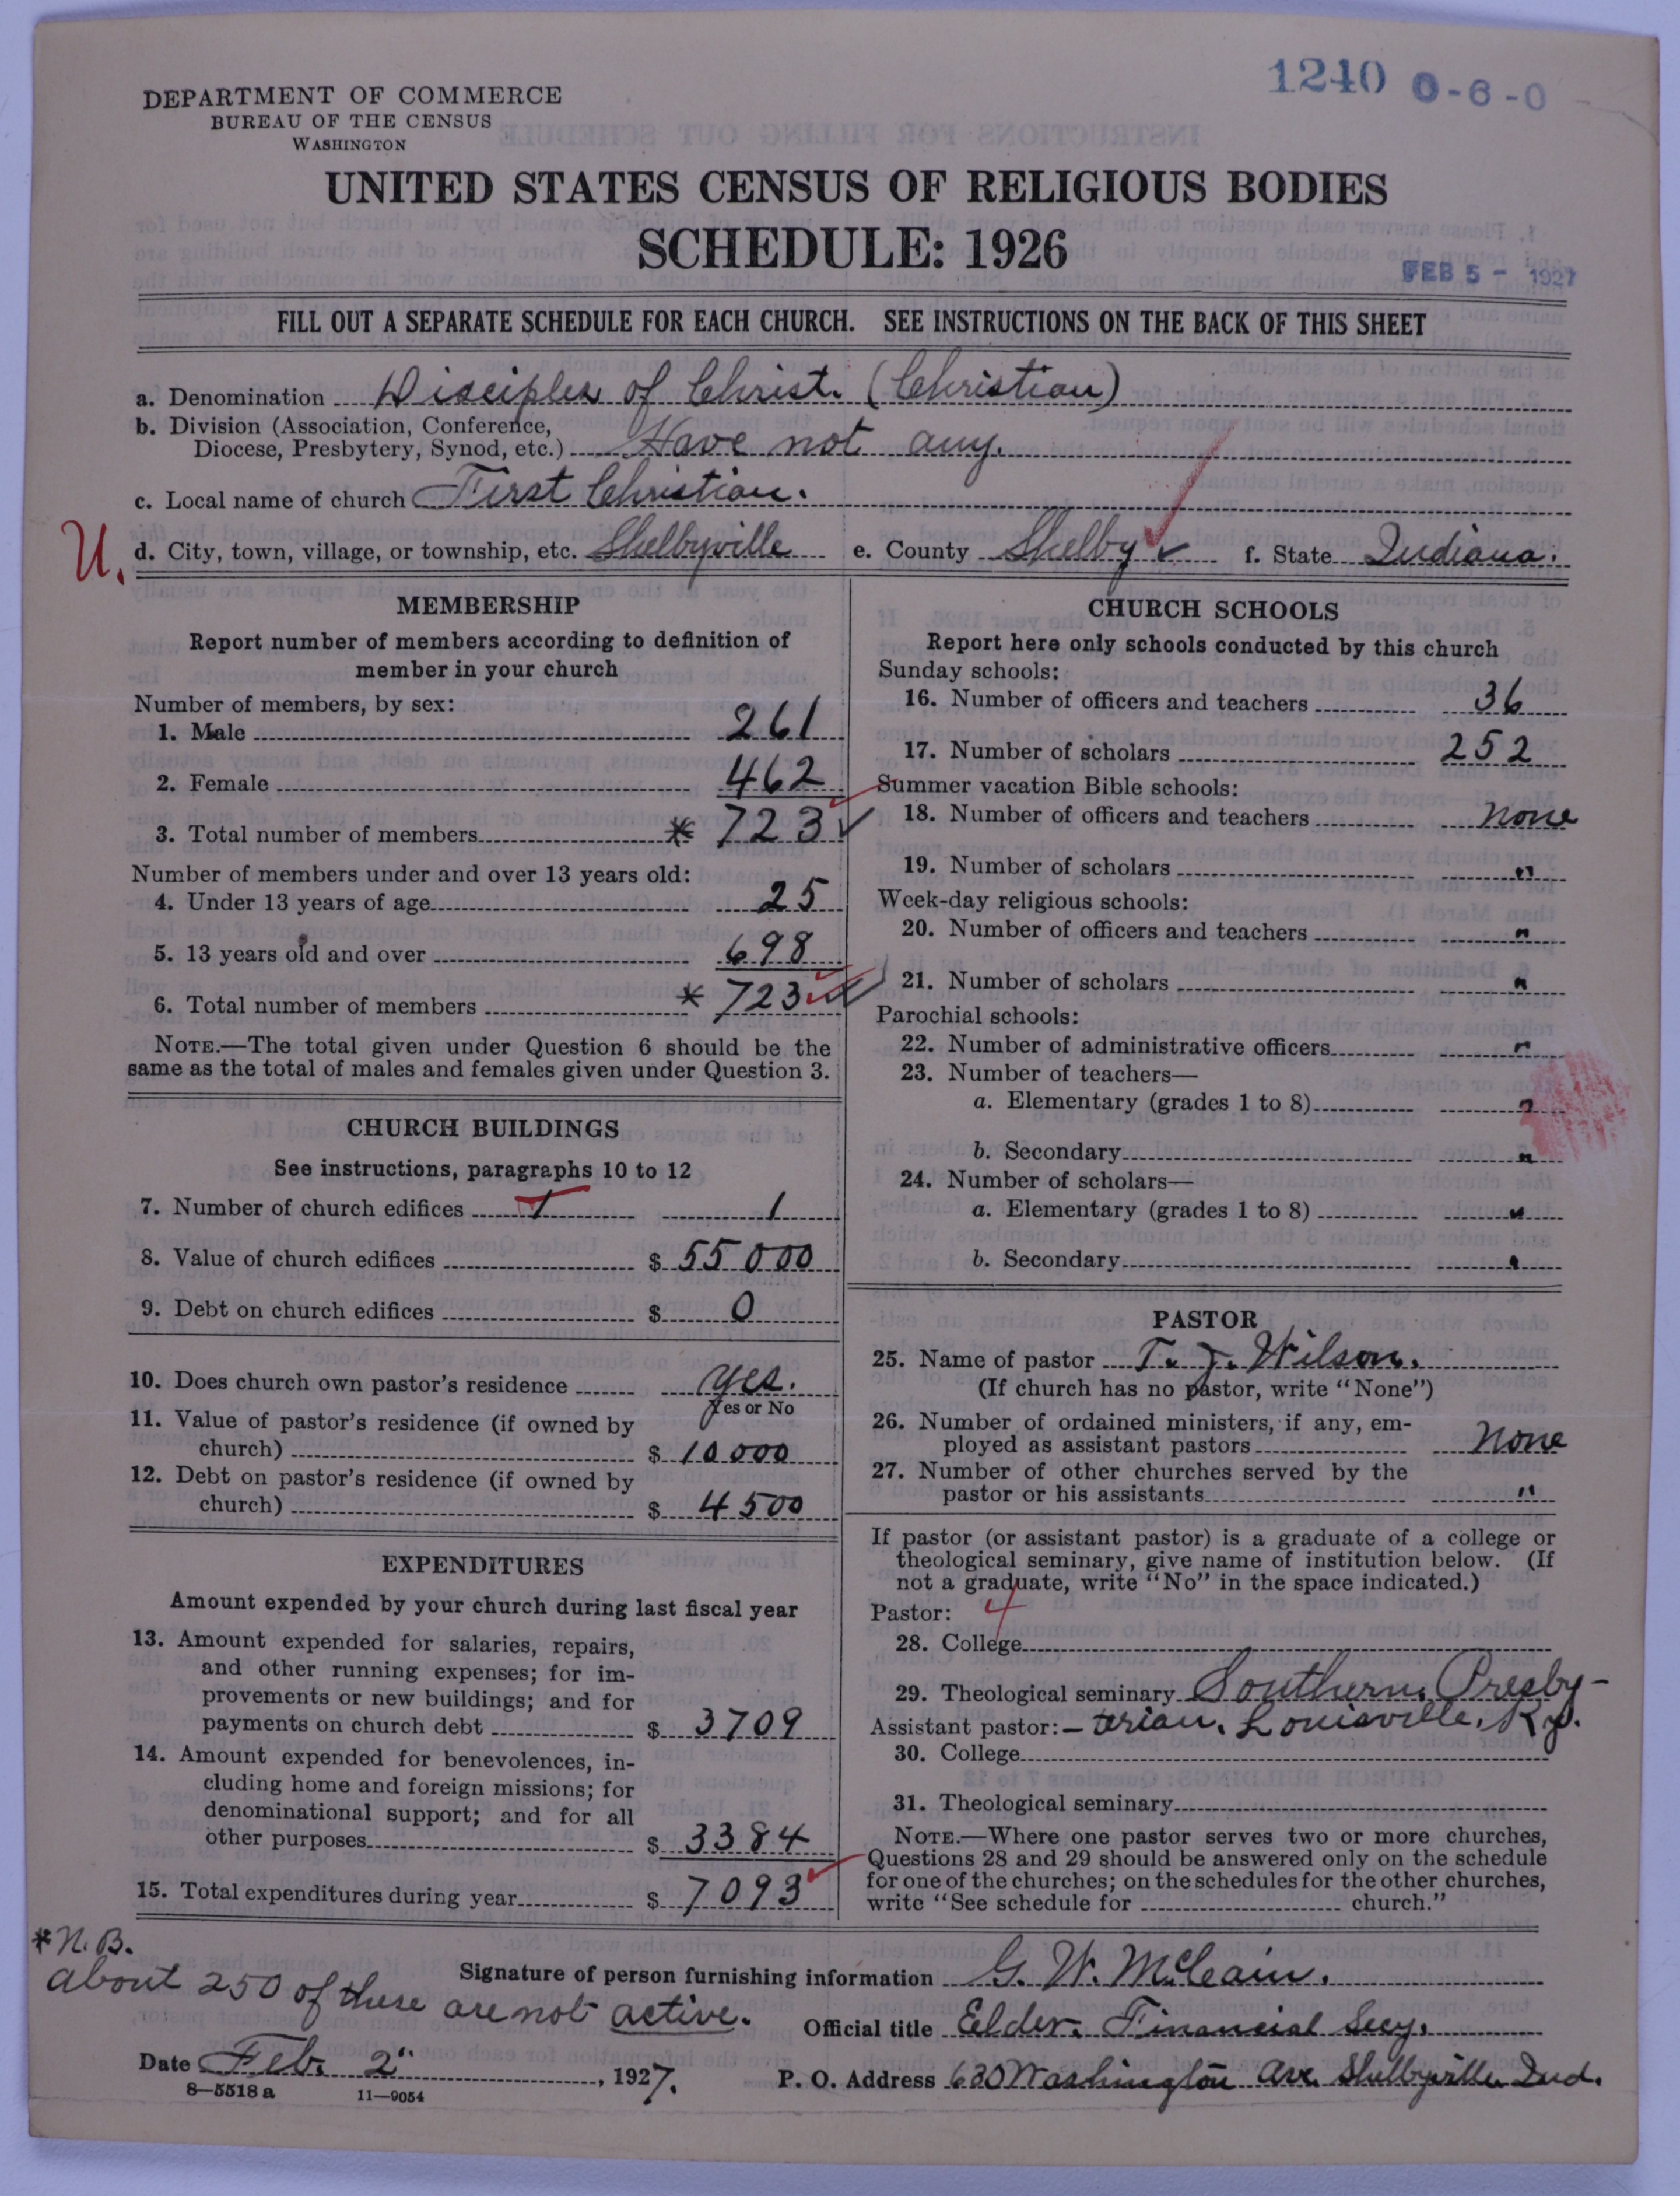 1240 0-6-0
DEPARTMENT OF COMMERCE
BUREAU OF THE CENSUS
WASHINGTON
UNITED STATES CENSUS OF RELIGIOUS BODIES
SCHEDULE: 1926
FEB 5 - 1927
FILL OUT A SEPARATE SCHEDULE FOR EACH CHURCH. SEE INSTRUCTIONS ON THE BACK OF THIS SHEET
a. Denomination Disciples of Christ. (Christian)
b. Division (Association, Conference,
Diocese, Presbytery, Synod, etc.) Have not any.
c. Local name of church First Christian.
U. d. City, town, village, or township, etc. Shelbyville e. County Shelby ✓ f. State Indiana.
MEMBERSHIP
Report number of members according to definition of
member in your church
Number of members, by sex:
1. Male 261
2. Female 462
3. Total number of members * 723 ✓
Number of members under and over 13 years old:
4. Under 13 years of age 25
5. 13 years old and over 698
6. Total number of members * 723
NOTE.—The total given under Question 6 should be the
same as the total of males and females given under Question 3.
CHURCH BUILDINGS
See instructions, paragraphs 10 to 12
7. Number of church edifices 1 1
8. Value of church edifices $ 55000
9. Debt on church edifices $ 0
10. Does church own pastor's residence yes.
Yes or No
11. Value of pastor's residence (if owned by
church) $ 10000
12. Debt on pastor's residence (if owned by
church) $ 4500
EXPENDITURES
Amount expended by your church during last fiscal year
13. Amount expended for salaries, repairs,
and other running expenses; for im-
provements or new buildings; and for
payments on church debt $ 3709
14. Amount expended for benevolences, in-
cluding home and foreign missions; for
denominational support; and for all
other purposes $ 3384
15. Total expenditures during year $ 7093
CHURCH SCHOOLS
Report here only schools conducted by this church
Sunday schools:
16. Number of officers and teachers 36
17. Number of scholars 252
Summer vacation Bible schools:
18. Number of officers and teachers none
19. Number of scholars "
Week-day religious schools:
20. Number of officers and teachers "
21. Number of scholars "
Parochial schools:
22. Number of administrative officers "
23. Number of teachers—
a. Elementary (grades 1 to 8) "
b. Secondary "
24. Number of scholars—
a. Elementary (grades 1 to 8) "
b. Secondary "
PASTOR
25. Name of pastor T. J. Wilson.
(If church has no pastor, write "None")
26. Number of ordained ministers, if any, em-
ployed as assistant pastors none
27. Number of other churches served by the
pastor or his assistants "
If pastor (or assistant pastor) is a graduate of a college or
theological seminary, give name of institution below. (If
not a graduate, write "No" in the space indicated.)
Pastor: 4
28. College
29. Theological seminary Southern Presby-
Assistant pastor: - terian. Louisville, Ky.
30. College
31. Theological seminary
NOTE.—Where one pastor serves two or more churches,
Questions 28 and 29 should be answered only on the schedule
for one of the churches; on the schedules for the other churches,
write "See schedule for church."
*N.B.
about 250 of these are not active.
Signature of person furnishing information G. W. McCain.
Official title Elder. Financial Secy.
Date Feb. 2", 1927. P. O. Address 630 Washington Ave. Shelbyville Ind.
8—5518 a 11—9054